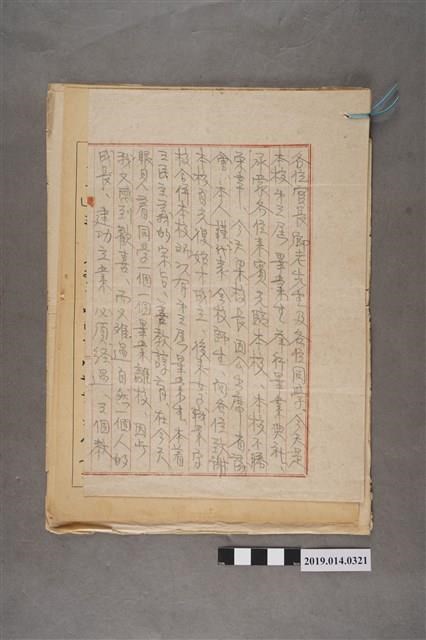 各位官長、師老先生及各位同學、今天是
本校第三屆畢業生舉行畢業典礼、
承蒙各位來賓光臨本校、本校不勝
榮幸、今天果校長因公出席
會、本人謹代表全校師生、向各位致謝
本校自光復始才成立、後來女子職業学
校合併本校
三民主義的宗旨、教育、在今天
眼見人看、同學一個一個畢業離校、因此
我又感到歡喜、而又難過自然一個人的
成長、建功立業必須經過、三個教
2019.014.0321